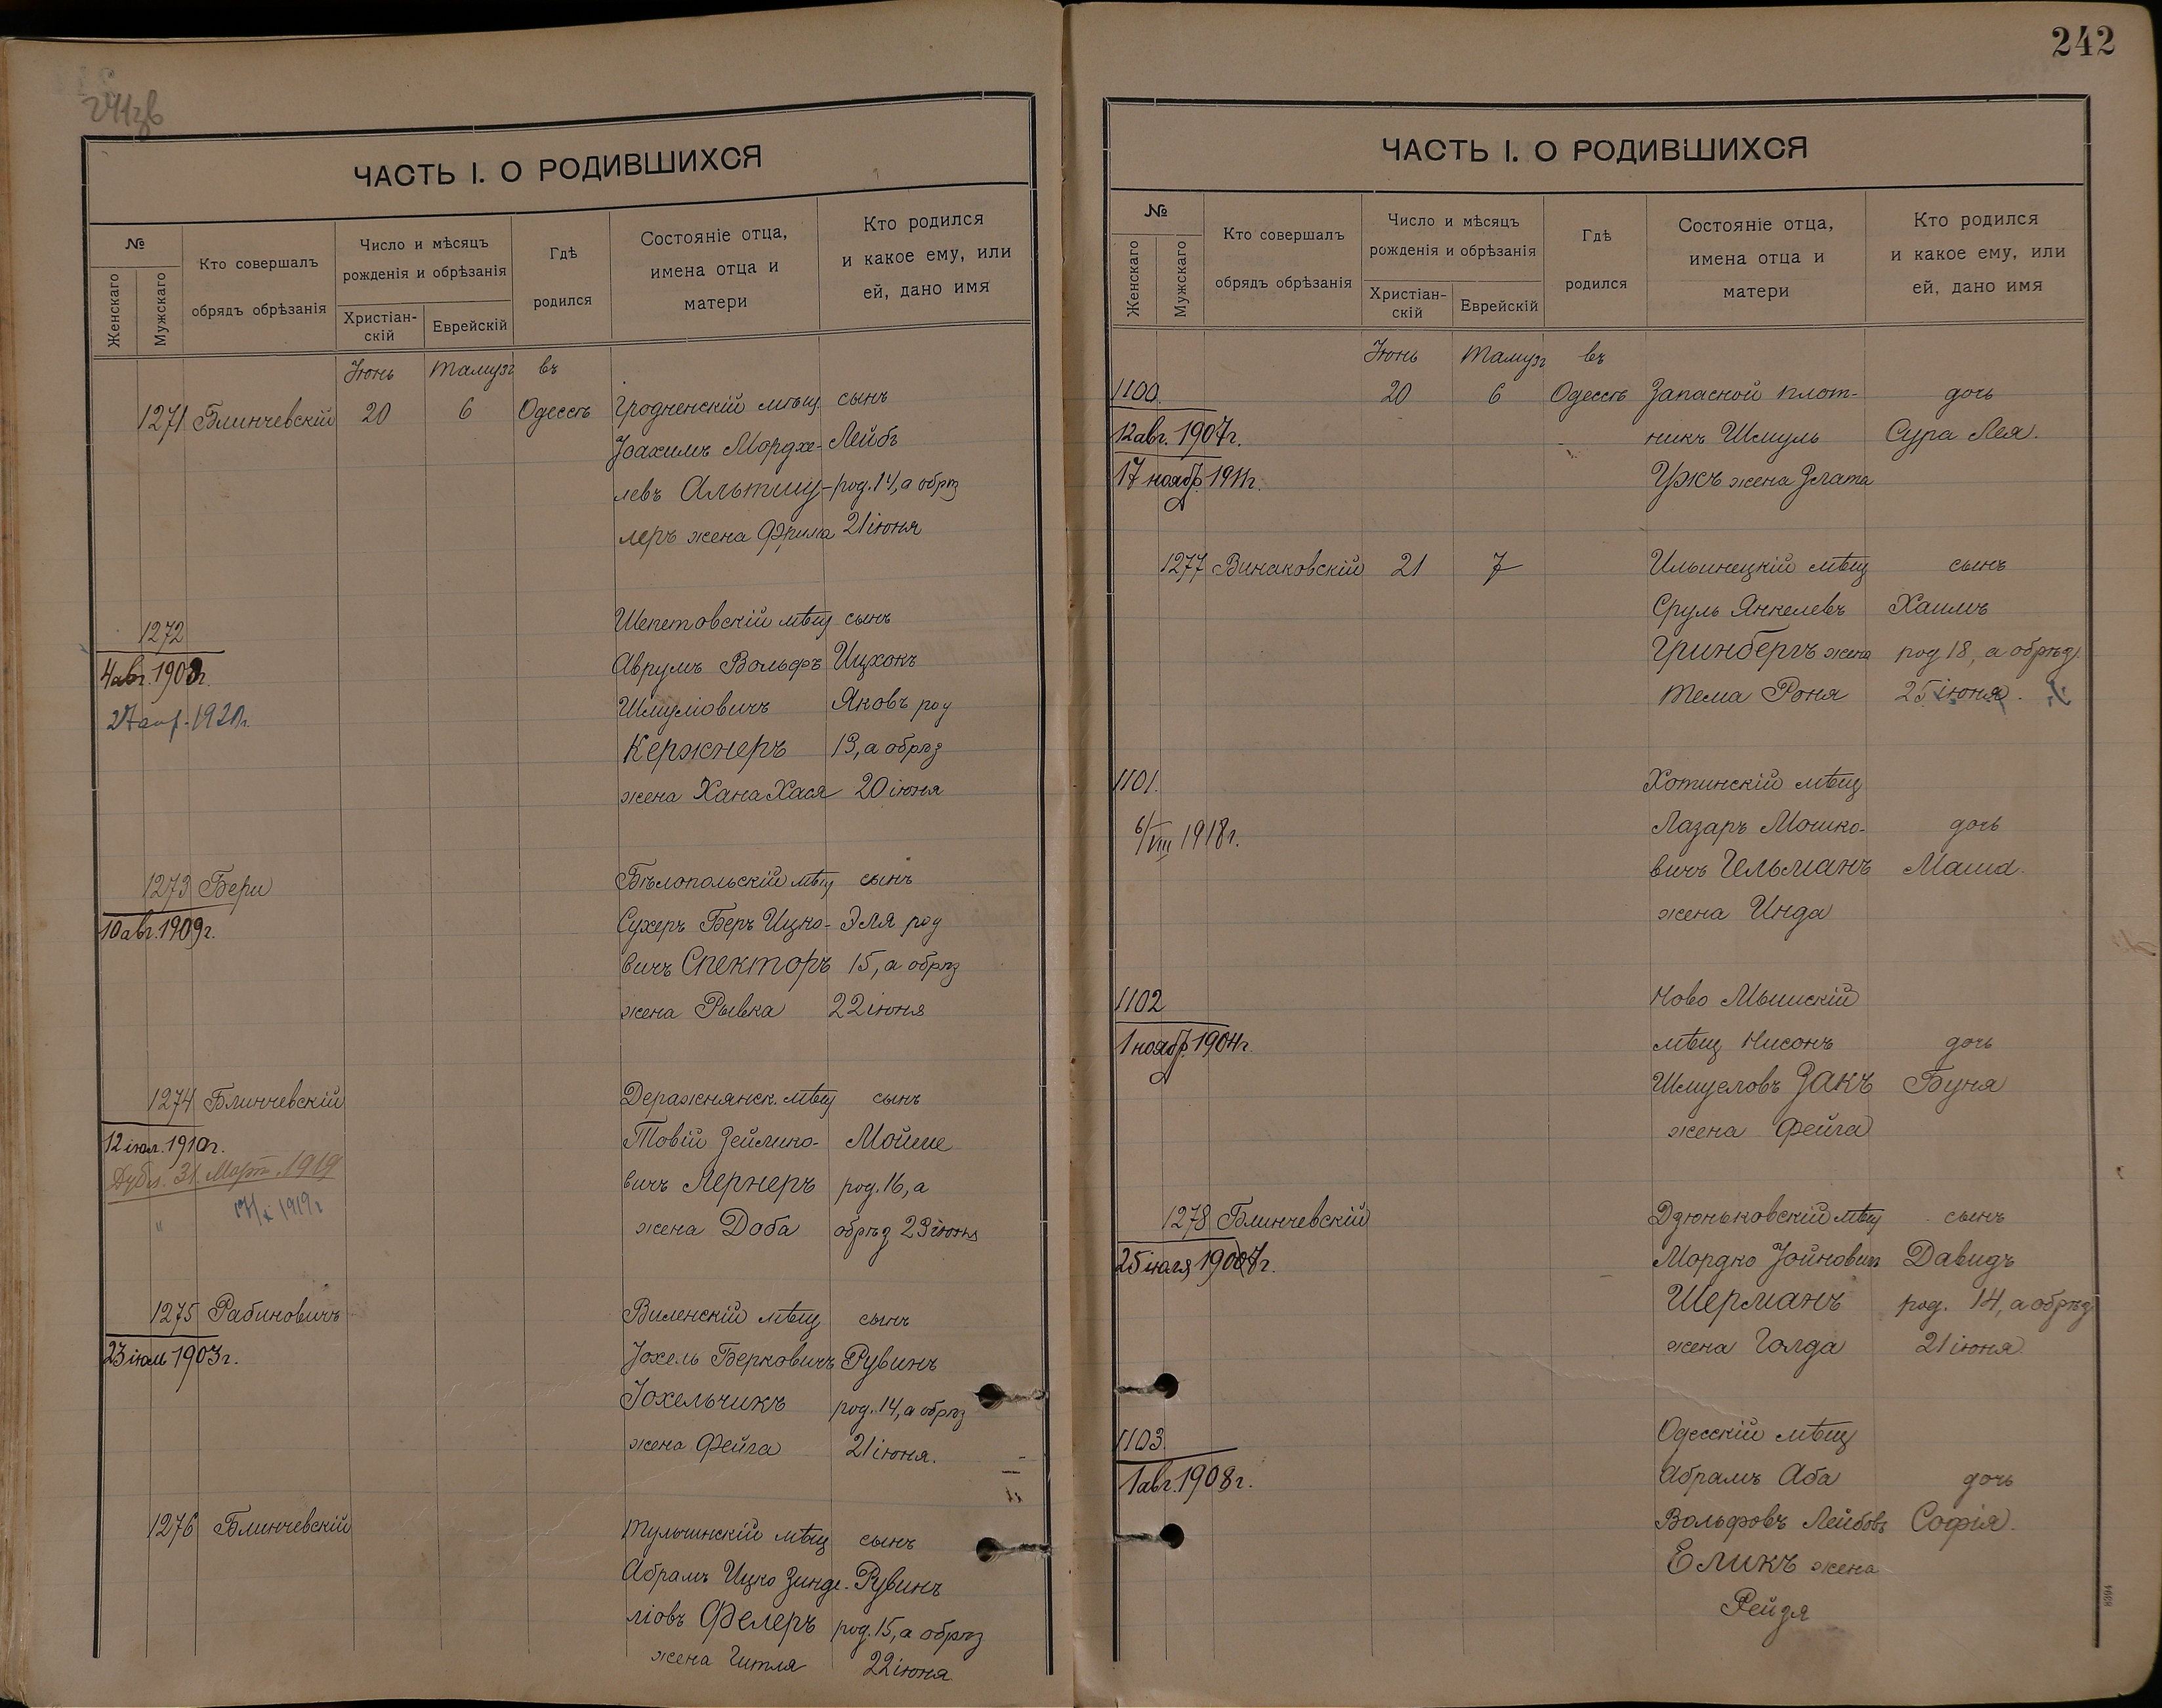 242
241зв
ЧАСТЬ I. О РОДИВШИХСЯ
№
Женскаго
Мужскаго
Кто совершалъ
обрядъ обрѣзанія
Число и мѣсяцъ
рожденія и обрѣзанія
Христіан-
скій
Еврейскій
Гдѣ
родился
Состояніе отца,
имена отца и
матери
Кто родился
и какое ему, или
ей, дано имя
Іюнь Тамузъ въ
1271 Блинчевскій 20 6 Одессѣ Гродненскій мѣщ. сынъ
Іоахимъ Мордхе- Лейбъ
левъ Альтшу- род. 14, а обрѣз
леръ жена Фрима 21 іюня
1272 Шепетовскій мѣщ сынъ
4 авг. 1903г. Аврумъ Вольфъ Ицхокъ
Шмуліовичъ Яковъ род
Кержнеръ 13, а обрѣз
жена Хана Хася 20 іюня
1273 Бери Бѣлопольскій мѣщ сынъ
10 авг. 1909г. Сухеръ Беръ Ицко- Эля род
вичъ Спекторъ 15, а обрѣз
жена Рывка 22 іюня
1274 Блинчевскій Деражнянск. мѣщ сынъ
12 іюл. 1910г. Товій Зейлико- Мойше
Дубл. 31 Март. 1919
вичъ Лернеръ род. 16, а
жена Доба обрѣз 23 іюня
1275 Рабиновичъ Виленскій мѣщ сынъ
23 іюль 1903г. Іохель Берковичъ Рувинъ
Іохельчикъ род. 14, а обрѣз
жена Фейга 21 іюня.
1276 Блинчевскій Тульчинскій мѣщ сынъ
Абрамъ Ицко Зинде- Рувинъ
ліовъ Фелеръ род. 15, а обрѣз
жена Гитля 22 іюня
ЧАСТЬ I. О РОДИВШИХСЯ
№
Женскаго
Мужскаго
Кто совершалъ
обрядъ обрѣзанія
Число и мѣсяцъ
рожденія и обрѣзанія
Христіан-
скій
Еврейскій
Гдѣ
родился
Состояніе отца,
имена отца и
матери
Кто родился
и какое ему, или
ей, дано имя
Іюнь Тамузъ въ
1100. 20 6 Одессѣ Запасной плот- дочь
12 авг. 1907г. никъ Шмуль Сура Лея.
17 ноябр. 1911г. Ужъ жена Злата
1277 Винаковскій 21 7 Ильинецкій мѣщ сынъ
Сруль Янкелевъ Хаимъ
Гринбергъ жена род 18, а обрѣз
Тема Роня 25 іюня.
1101. Хотинскій мѣщ
6/VIII 1918г. Лазарь Мошко- дочь
вичъ Гельманъ Маша.
жена Инда
1102 Ново Мышскій
1 ноябр. 1904г. мѣщ Нисонъ дочь
Шмуеловъ Закъ Буня
жена Фейга
1278 Блинчевскій Дзюньковскій мѣщ сынъ
25 іюля 1907г. Мордко Іойновичъ Давидъ
Шерманъ род. 14, а обрѣз
жена Голда 21 іюня
1103. Одесскій мѣщ
1 авг. 1908г. Абрамъ Аба дочь
Вольфовъ Лейбовъ Софія.
Еликъ жена
Рейзя